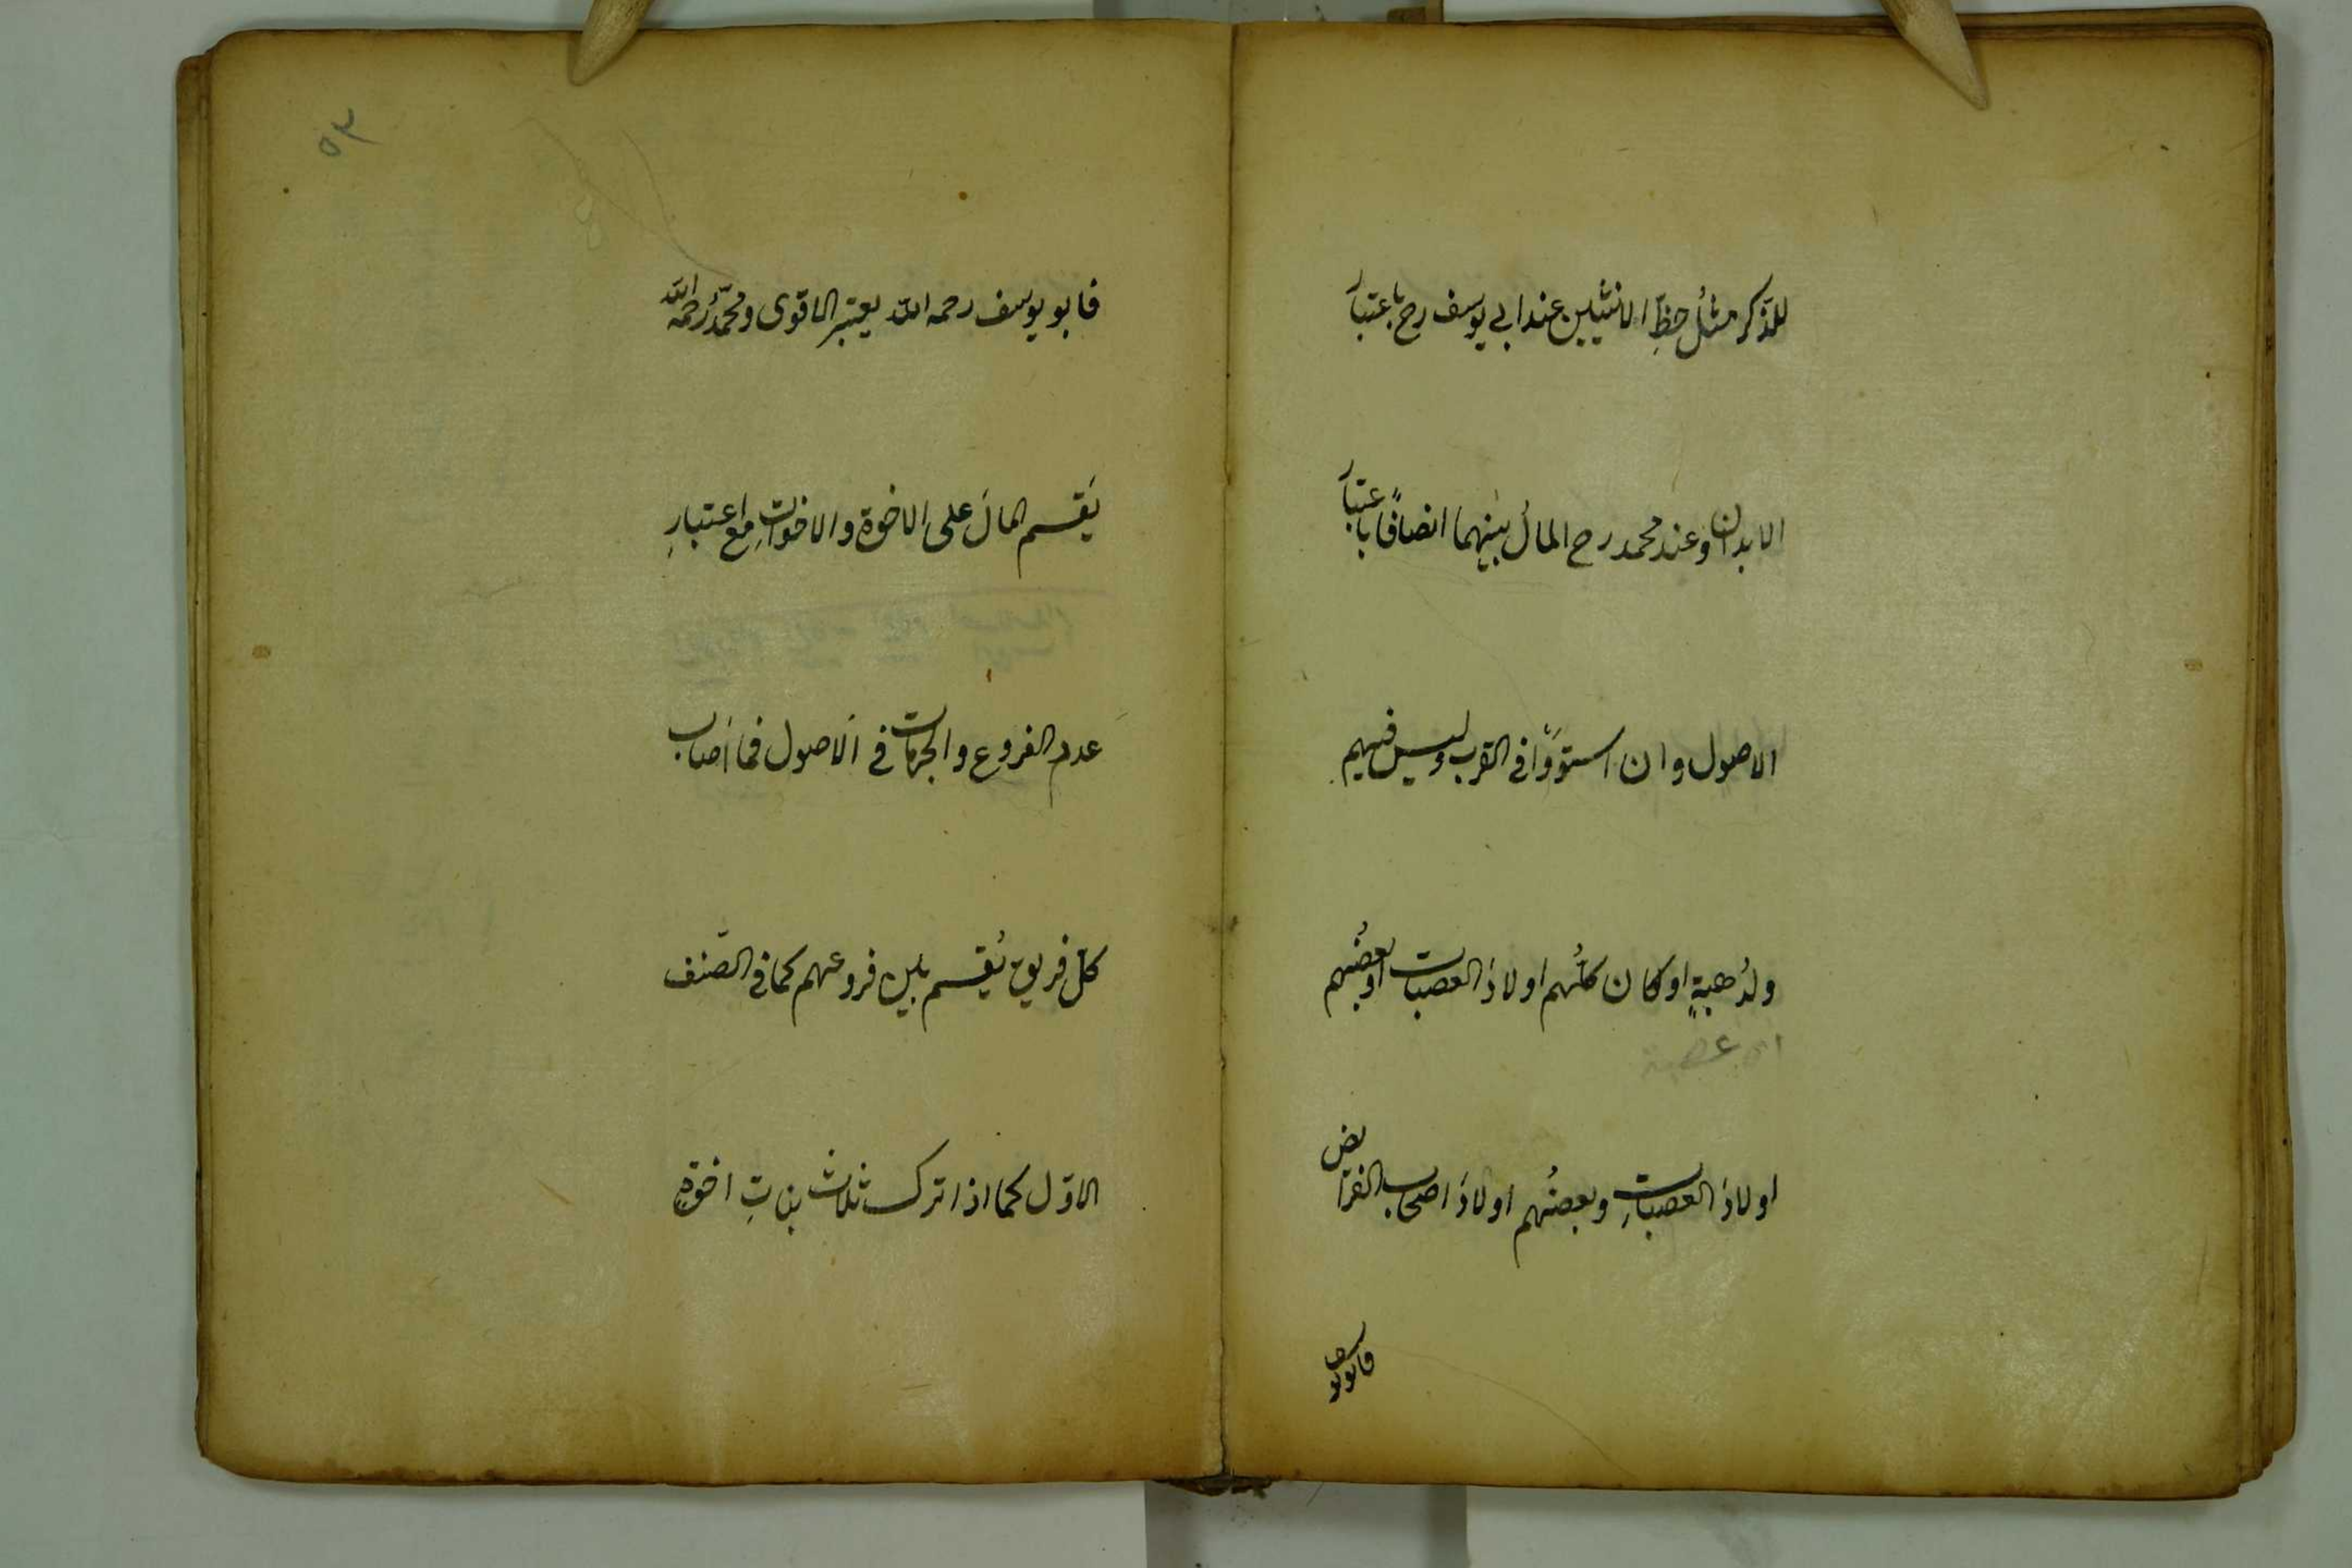 للذّكر مثلُ حظِّ الانثيين عند ابي يوسف رح باعتبار
الابدان وعند محمد رح المالُ بينهما انصافًا باعتبار
الاصول وان استوَوْا في القرب وليس فيهم
ولدُ عصبةٍ او كان كلُّهم اولادَ العصبات او بعضُهم
عصبة
اولادَ العصباتِ وبعضُهم اولادَ اصحاب الفرائض
فابويوسف
٥٣
فابو يوسف رحمه الله يعتبر الاقوى ومحمّدٌ رحمه الله
يَقسم المالَ على الاخوة والاخواتِ مع اعتبارِ
عدد الفروع والجهات في الاُصول فما اَصاب
كلّ فريق يُقسم بين فروعهم كما في الصّنف
الاوّل كما اذا ترك ثلاث بناتِ اخوةٍ